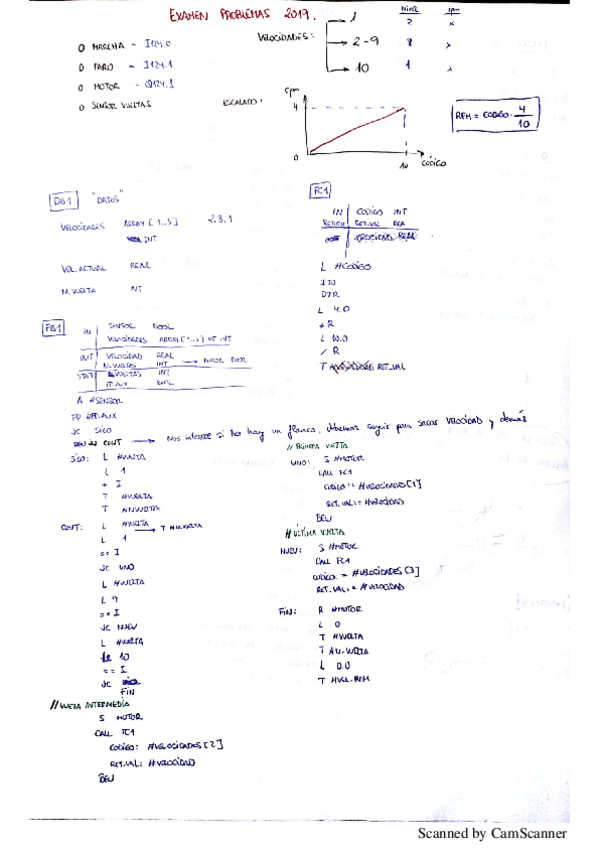 EXAMEN PROBLEMAS 2019.
O MARCHA - I124.0
O FARO - I124.1
O MOTOR - Q124.1
O SENSOR VUELTAS
VELOCIDADES:
Nivel rpm
1 2 x
2-9 8 x
10 1 x
ESCALADO:
rpm
4
0
10 código
RPM = CODIGO · 4/10
DB1 "DATOS"
VELOCIDADES ARRAY [1..3] 2.8.1
INT
VEL. ACTUAL REAL
N. VUELTA INT
FC1
IN CODIGO INT
RETURN RET.VAL REAL
L #CODIGO
ITD
DTR
L 4.0
* R
L 10.0
/ R
T RET_VAL
FB1
IN SENSOR BOOL
VELOCIDADES ARRAY [1..3] OF INT
OUT VELOCIDAD REAL
N.VUELTAS INT → MOTOR BOOL
STAT VUELTAS INT
FP.AUX BOOL
A #SENSOR
FP #FP.AUX
JC SIGO
CONT → Nos interesa si no hay un flanco, debemos seguir para sacar VELOCIDAD y demás
SIGO: L #VUELTA
L 1
+ I
T #VUELTA
T #NVUELTA
CONT: L #VUELTA → T #N.VUELTA
L 1
== I
JC UNO
L #VUELTA
L 9
== I
JC NUEV
L #VUELTA
10
== I
JC
FIN
// VUELTA INTERMEDIA
S MOTOR
CALL FC1
CODIGO: #VELOCIDADES [2]
RET.VAL: #VELOCIDAD
BEU
// PRIMERA VUELTA
UNO: S #MOTOR
CALL FC1
CODIGO := #VELOCIDADES [1]
RET.VAL: = #VELOCIDAD
BEU
// ÚLTIMA VUELTA
NUEV: S #MOTOR
CALL FC1
CODIGO: = #VELOCIDADES [3]
RET.VAL: = #VELOCIDAD
FIN: R #MOTOR
L 0
T #VUELTA
T #N.VUELTA
L 0.0
T #VEL.RPM
Scanned by CamScanner